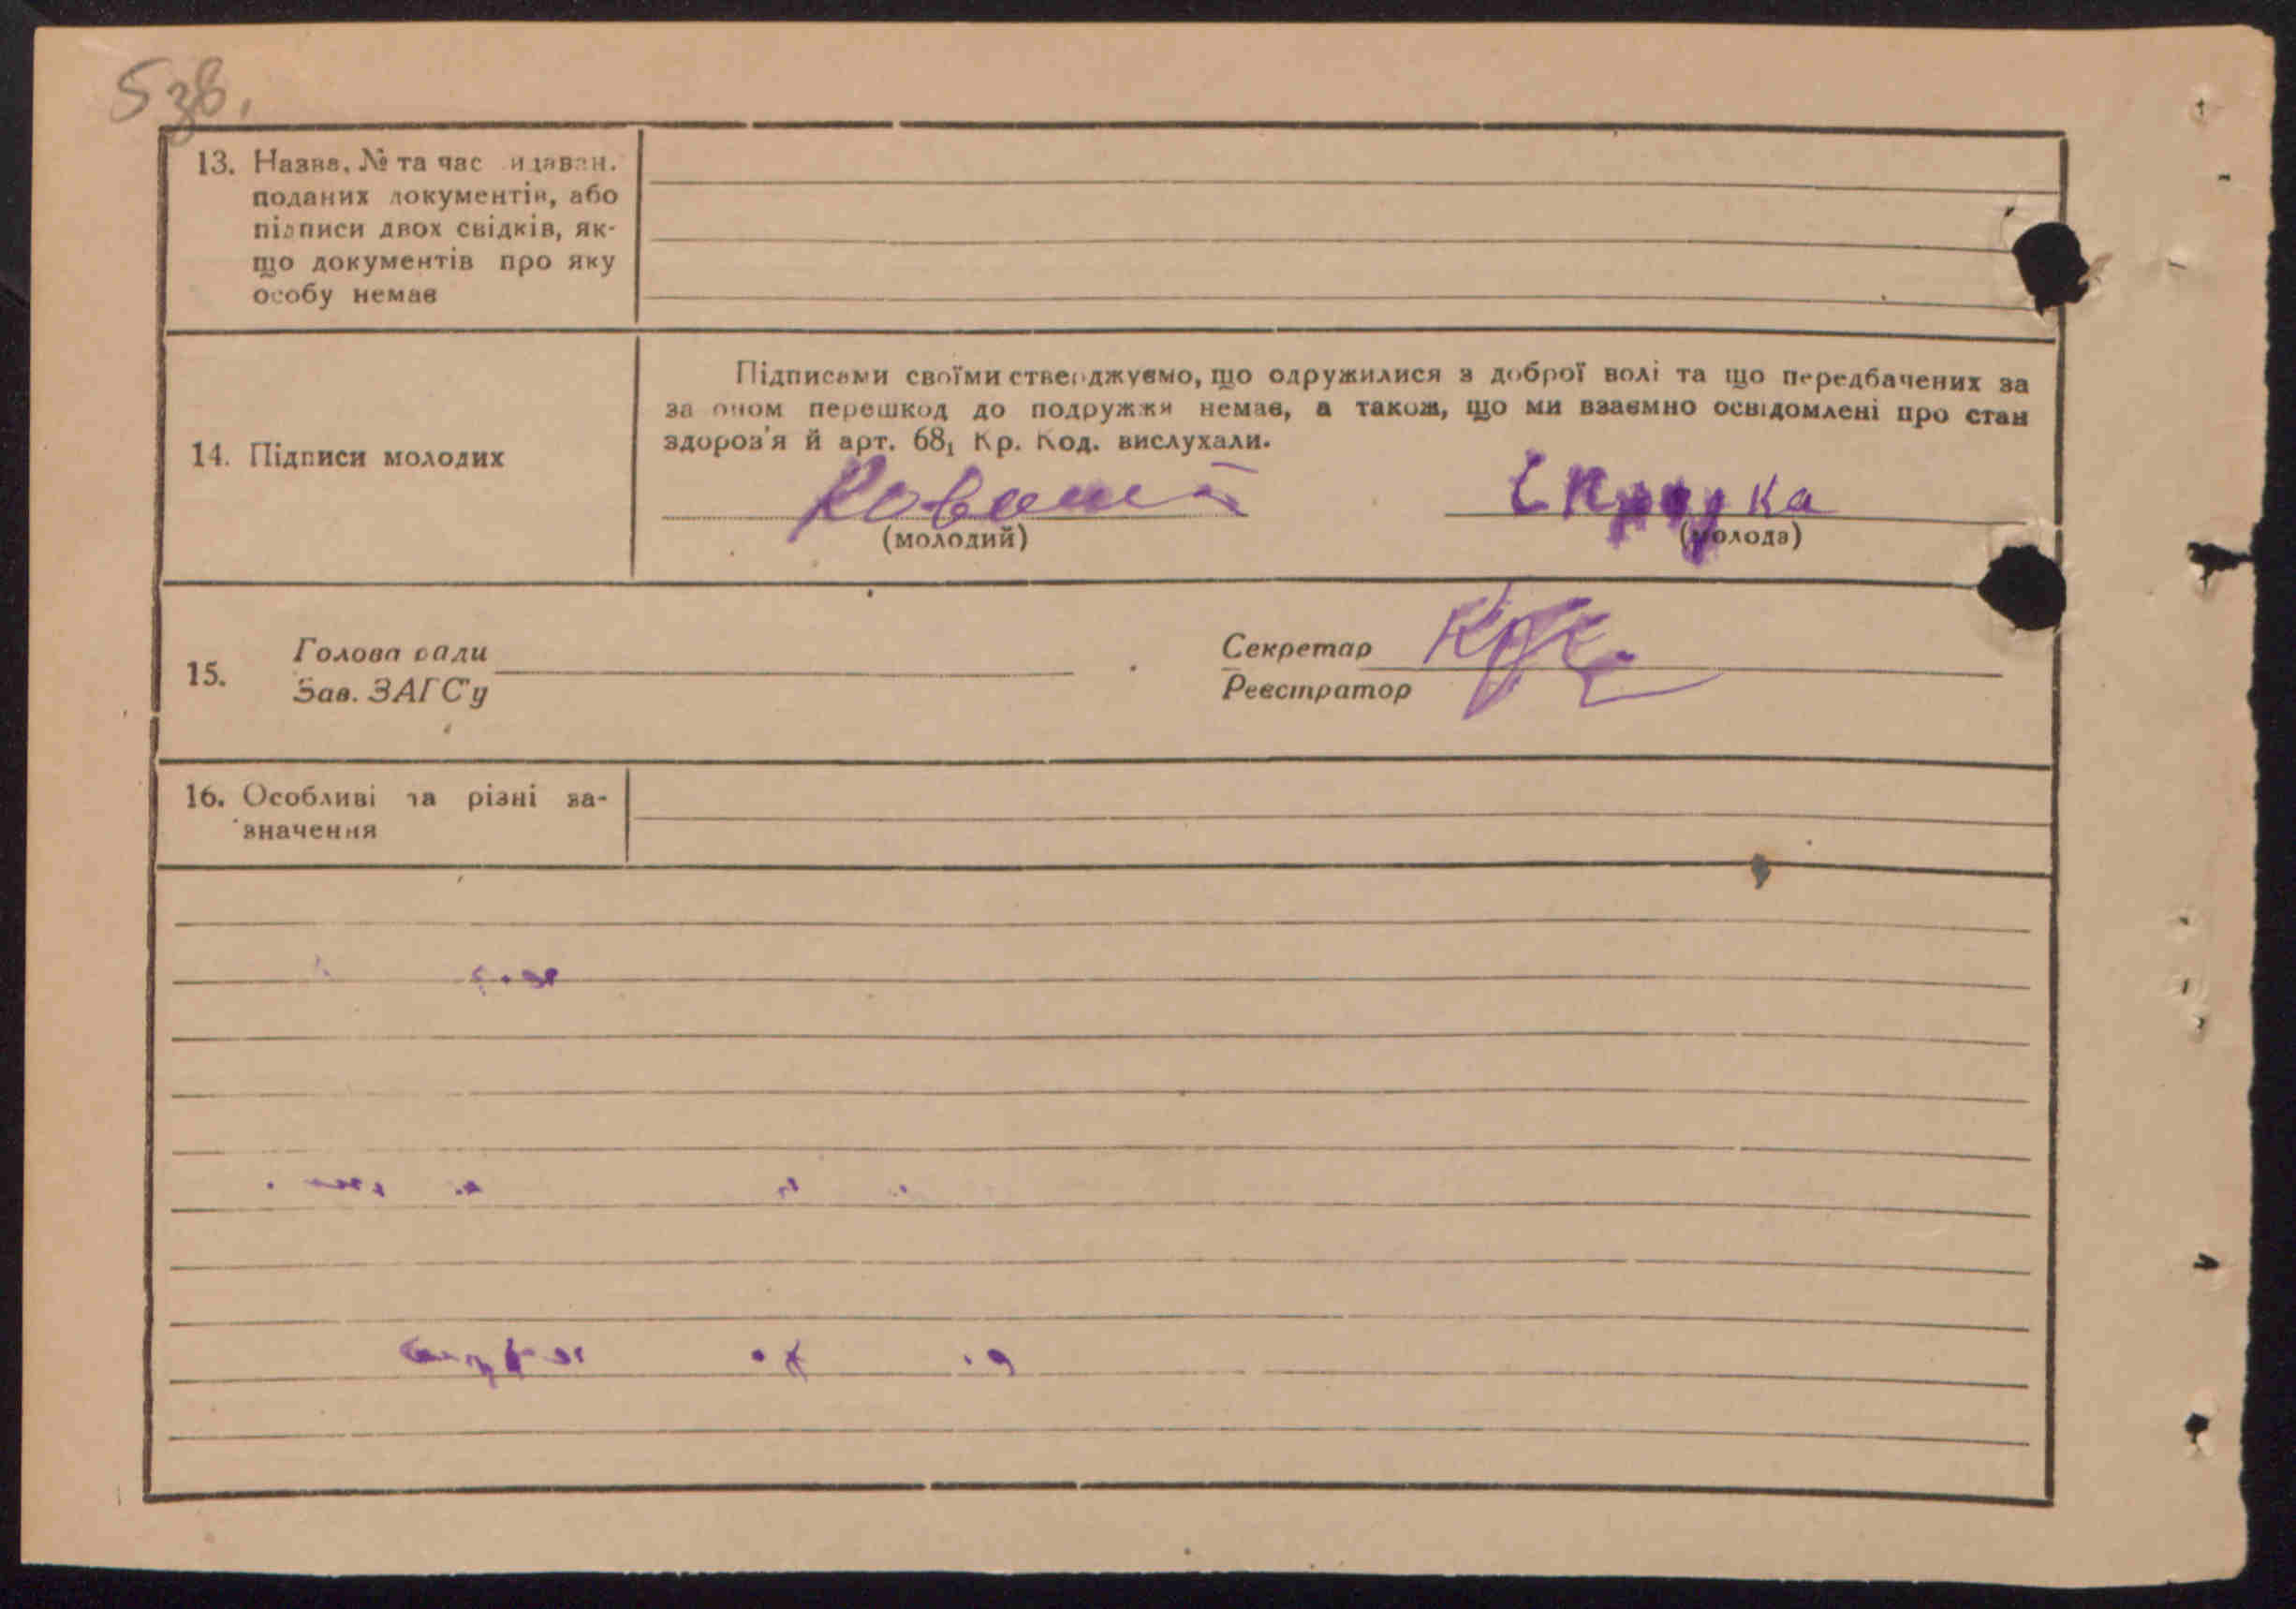 538.
13. Назва, № та час видаван.
поданих документів, або
підписи двох свідків, як-
що документів про яку
особу немає
Підписами своїми стверджуємо, що одружилися з доброї волі та що передбачених за
законом перешкод до подружжя немає, а також, що ми взаємно освідомлені про стан
здоров'я й арт. 68₁ Кр. Код. вислухали.
14. Підписи молодих
(молодий)
(молода)
15.
Голова ради
Зав. ЗАГС'у
Секретар
Реєстратор
16. Особливі та різні за-
значення